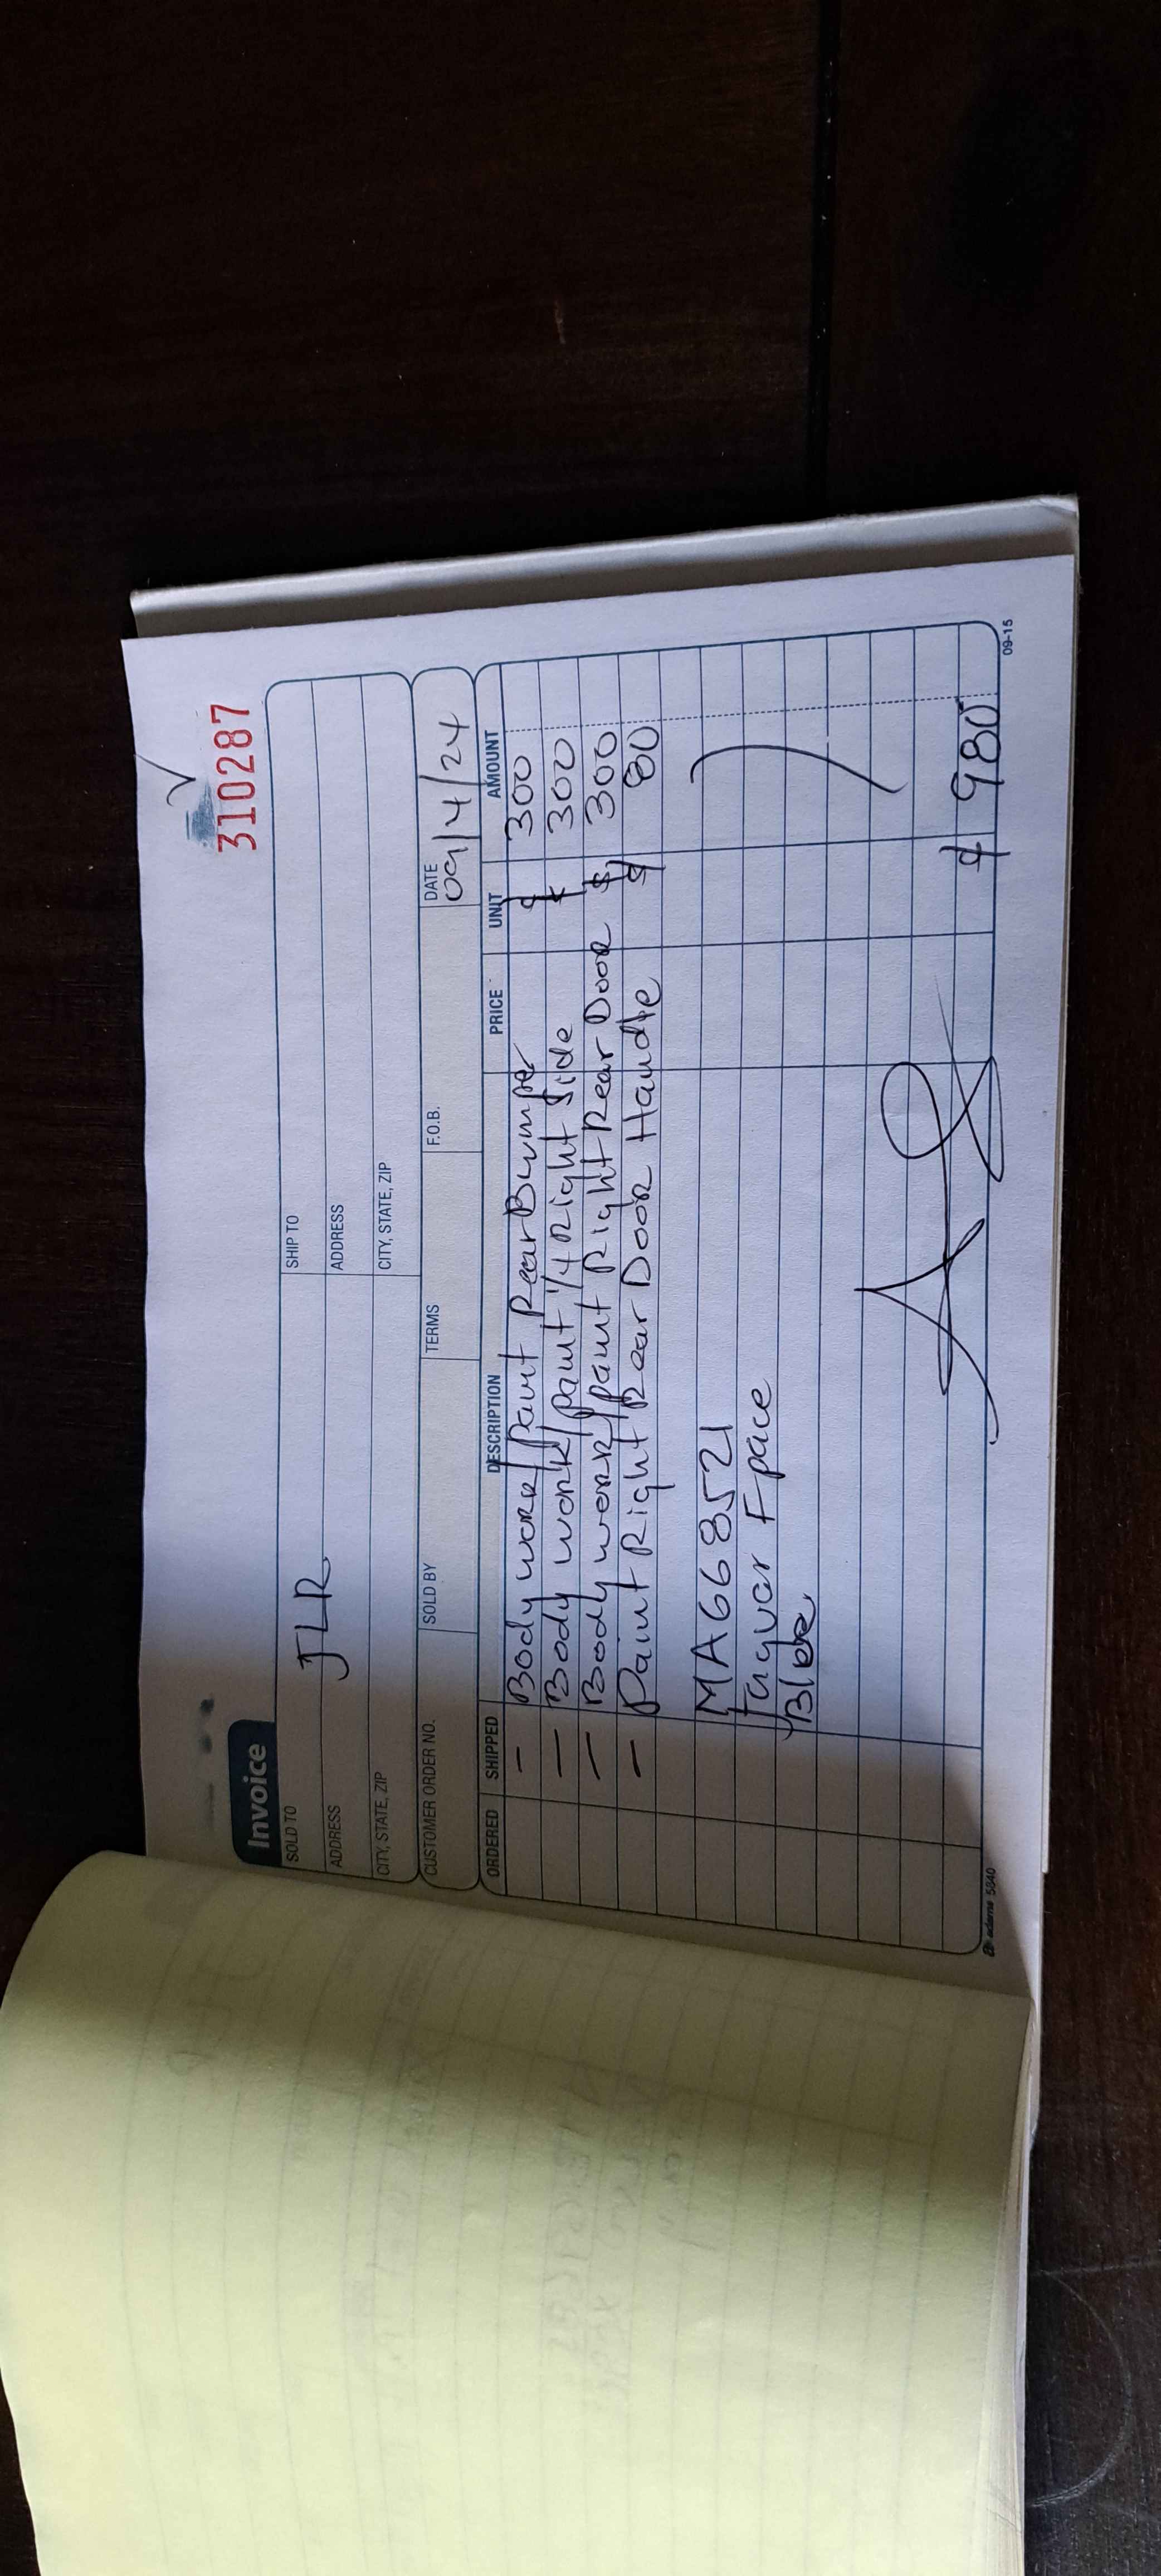 310287
Invoice
SOLD TO JLR SHIP TO
ADDRESS ADDRESS
CITY, STATE, ZIP CITY, STATE, ZIP
CUSTOMER ORDER NO. SOLD BY TERMS F.O.B. DATE 09/4/24
ORDERED SHIPPED DESCRIPTION PRICE UNIT AMOUNT
- Body work/Paint Rear Bumper $ 300
- Body work/paint 1/4 Right Side $ 300
- Body work/paint Right Rear Door $ 300
- Paint Right Rear Door Handle $ 80
MA668521
Jaguar Fpace
$ 980
adams 5840 09-15